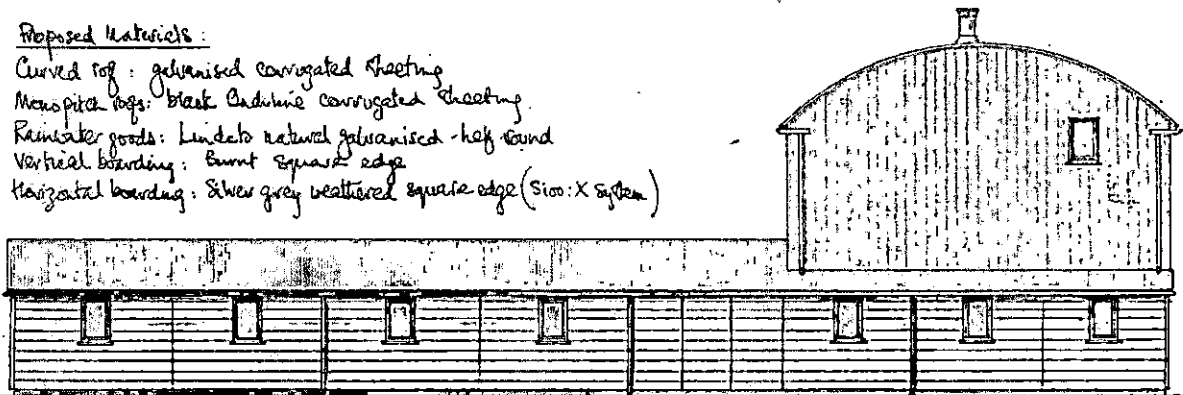 Proposed Materials:
Curved roof: galvanised corrugated sheeting
Monopitch roofs: black Onduline corrugated sheeting
Rainwater goods: Lindab natural galvanised - half round
Vertical boarding: Burnt square edge
Horizontal boarding: Silver grey weathered square edge (Sioo:X System)